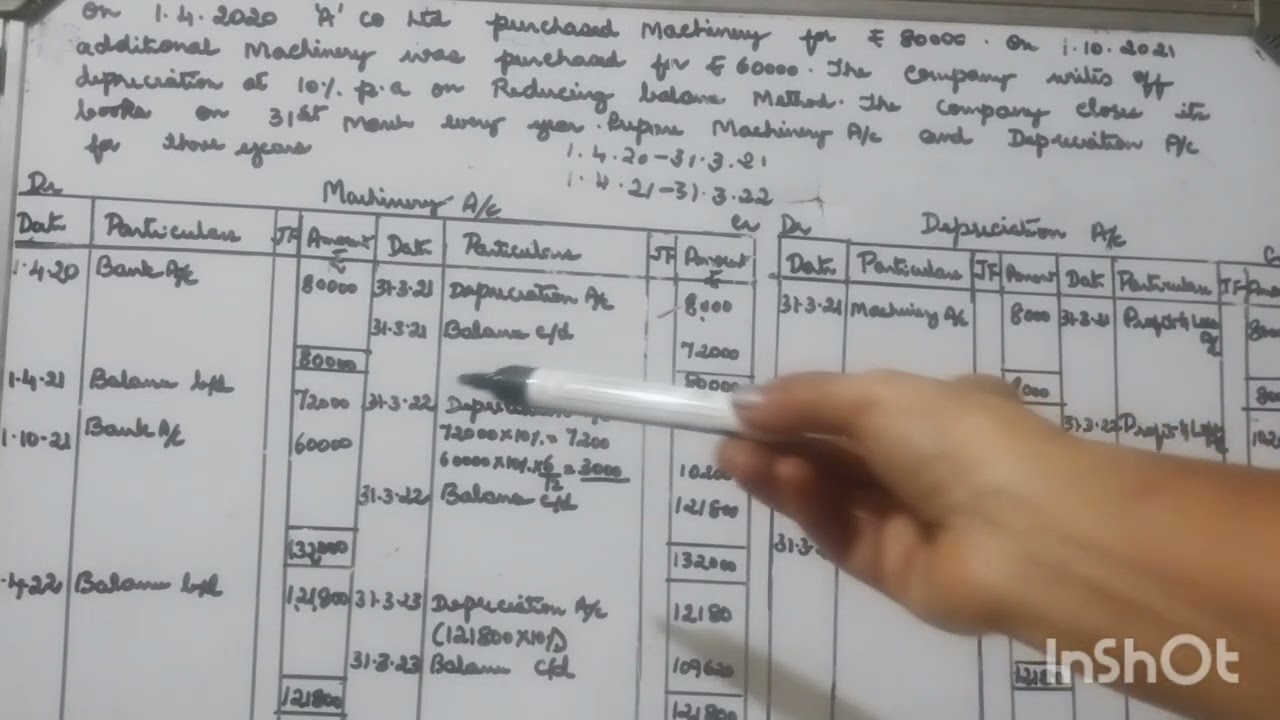 On 1.4.2020 'A' Co Ltd purchased Machinery for ₹ 80000. On 1.10.2021
additional Machinery was purchased for ₹ 60000. The Company writes off
depreciation at 10% p.a on Reducing balance Method. The Company closes its
books on 31st March every year. Prepare Machinery A/c and Depreciation A/c
for three years
1.4.20-31.3.21
1.4.21-31.3.22
Dr Machinery A/c Cr
Date Particulars JF Amount ₹ Date Particulars JF Amount ₹
1.4.20 Bank A/c 80000 31.3.21 Depreciation A/c 8000
31.3.21 Balance c/d 72000
80000 80000
1.4.21 Balance b/d 72000 31.3.22
1.10.21 Bank A/c 60000 72000×10% = 7200
60000×10%×6/12 = 3000 10200
31.3.22 Balance c/d 121800
132000 132000
.4.22 Balance b/d 121800 31.3.23 Depreciation A/c 12180
(121800×10%)
31.3.23 Balance c/d 109620
121800 121800
Dr Depreciation A/c
Date Particulars JF Amount Date Particulars JF
31.3.21 Machinery A/c 8000 31.3.21 Profit & Loss A/c
31.3.22 Profit & Loss A/c
InShOt